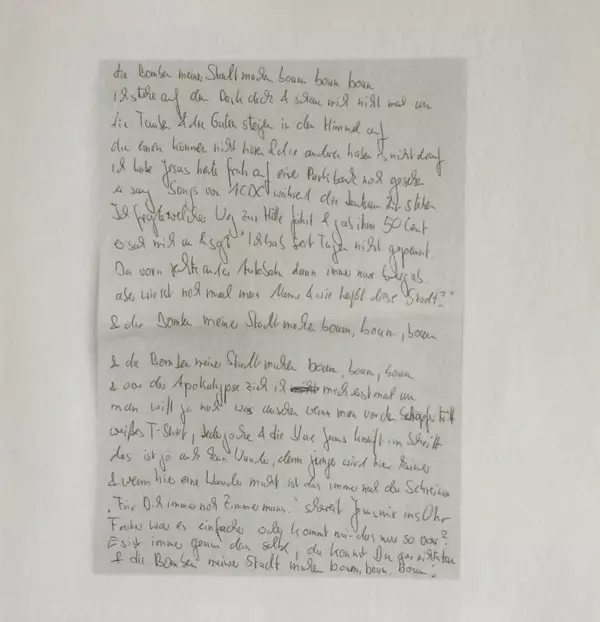 die Bomben meiner Stadt machen boum boum boum
ich stehe auf dem Parkdeck & schau mich nicht mal um
die Tauben & die Guten steigen in den Himmel auf
die einen können nicht hören & die anderen haben 's nicht drauf
ich habe Jesus heute früh auf einer Parkbank noch gesehen
er sang Songs von ACDC während die
Ich fragte welcher Weg zur Hölle führt & gab ihm 50 Cent
er sah mich an & sagt "Ich hab seit Tagen nicht gepennt.
Da vorn rechts auf der Autobahn dann immer nur bergab.
aber wie ist noch mal mein Name & wie heißt diese Stadt?"
& die Bomben meiner Stadt machen boum, boum, boum
& die Bomben meiner Stadt machen boum, boum, boum
& vor der Apokalypse zieh ich mich erst mal um
man will ja noch was aussehen wenn man vor den Schöpfer tritt
weißes T-Shirt, Lederjacke & die Jeans kneift im Schritt
das ist ja auch kein Wunder, denn jünger wird hier keiner
& wenn hier eine Wunder macht ist das immer noch der Schreiner
"Für Dich immer noch Zimmermann." schreit Jesus mir ins Ohr
Früher war es einfacher oder kommt mir das nur so vor?
Es ist immer genau das selbe, da kannst Du gar nichts tun
& die Bomben meiner Stadt machen boum, boum, boum!